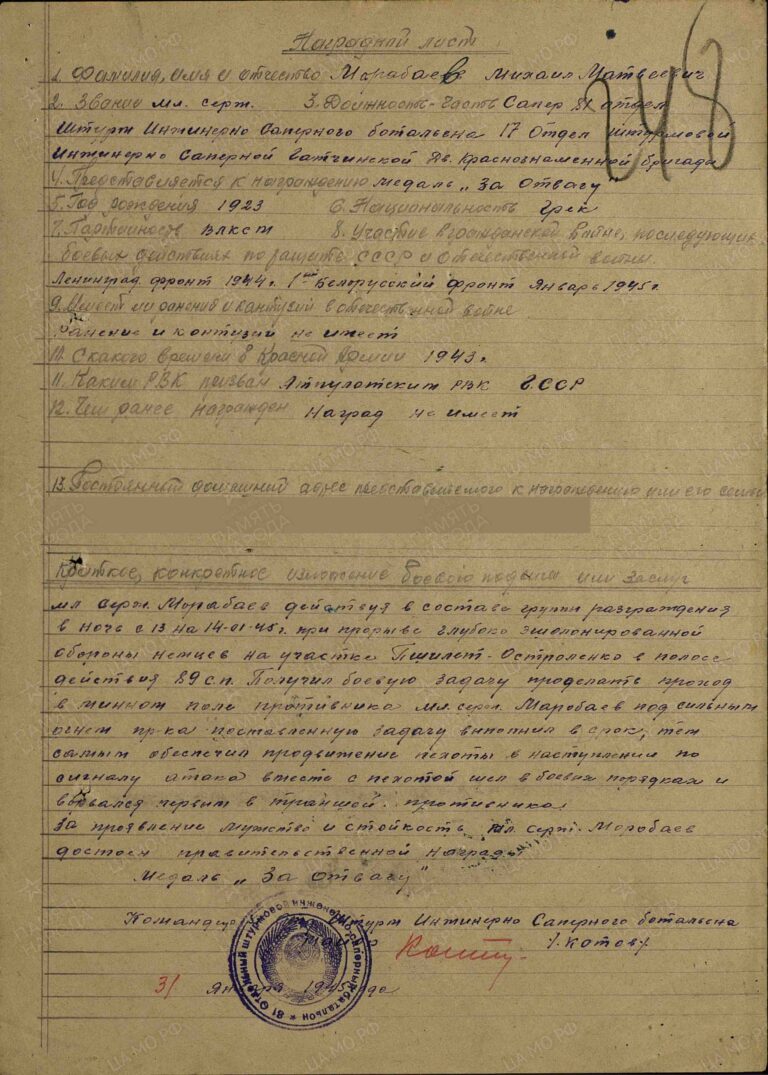 Наградной лист
248
1. Фамилия, имя и отчество Марабаев Михаил Матвеевич
2. Звание мл. серж. 3. Должность-часть Сапер 81 отдел
Штурм Инжинерно Саперного ботальена 17 Отдел Штурмовой
Инжинерно Саперной Гатчинской Кр. Краснознаменной бригады
4. Представляется к награждению медаль „За Отвагу"
5. Год рождения 1923 6. Национальность Грек
7. Партийность ВЛКСМ 8. Участие в гражданской войне, последующих
боевых действиях по защите СССР и отечественной войны.
Ленинград. фронт 1944г. 1ый Белорусский фронт Январь 1945г
9. Имеет ли ранения и кантузии в отечественной войне
Ранение и контузий не имеет
10. С какого времени в Красной Армии 1943г.
11. Каким РВК призван РВК ГССР
12. Чем ранее награжден Наград не имеет
13. Постоянный домашний адрес представляемого к награждению или его семьи
Краткое, конкретное изложение боевого подвига или заслуг
мл серж. Морабаев действуя в составе группы разграждения
в ночь с 13 на 14-01-45г. при прорыве глубоко эшолонированной
обороны немцев на участке Пшилет-Остроленко в полосе
действия 89 с.п. Получил боевую задачу проделать проход
в минном поле противника мл. серж. Маробаев под сильным
огнем пр-ка поставленную задачу выполнил в срок, тем
самым обеспечил продвижение пехоты в наступлении по
сигналу атака вместе с пехотой шел в боевых порядках и
ворвался первым в траншей. противника.
За проявление мужество и стойкость мл. серж. Моробаев
достоен правительственной награды
Медаль „За Отвагу"
Командир Штурм Инжинерно Саперного ботальена
майор /.Котов/
31 Января 1945 года
81 Отдельный штурмовой инженерно-саперный батальон